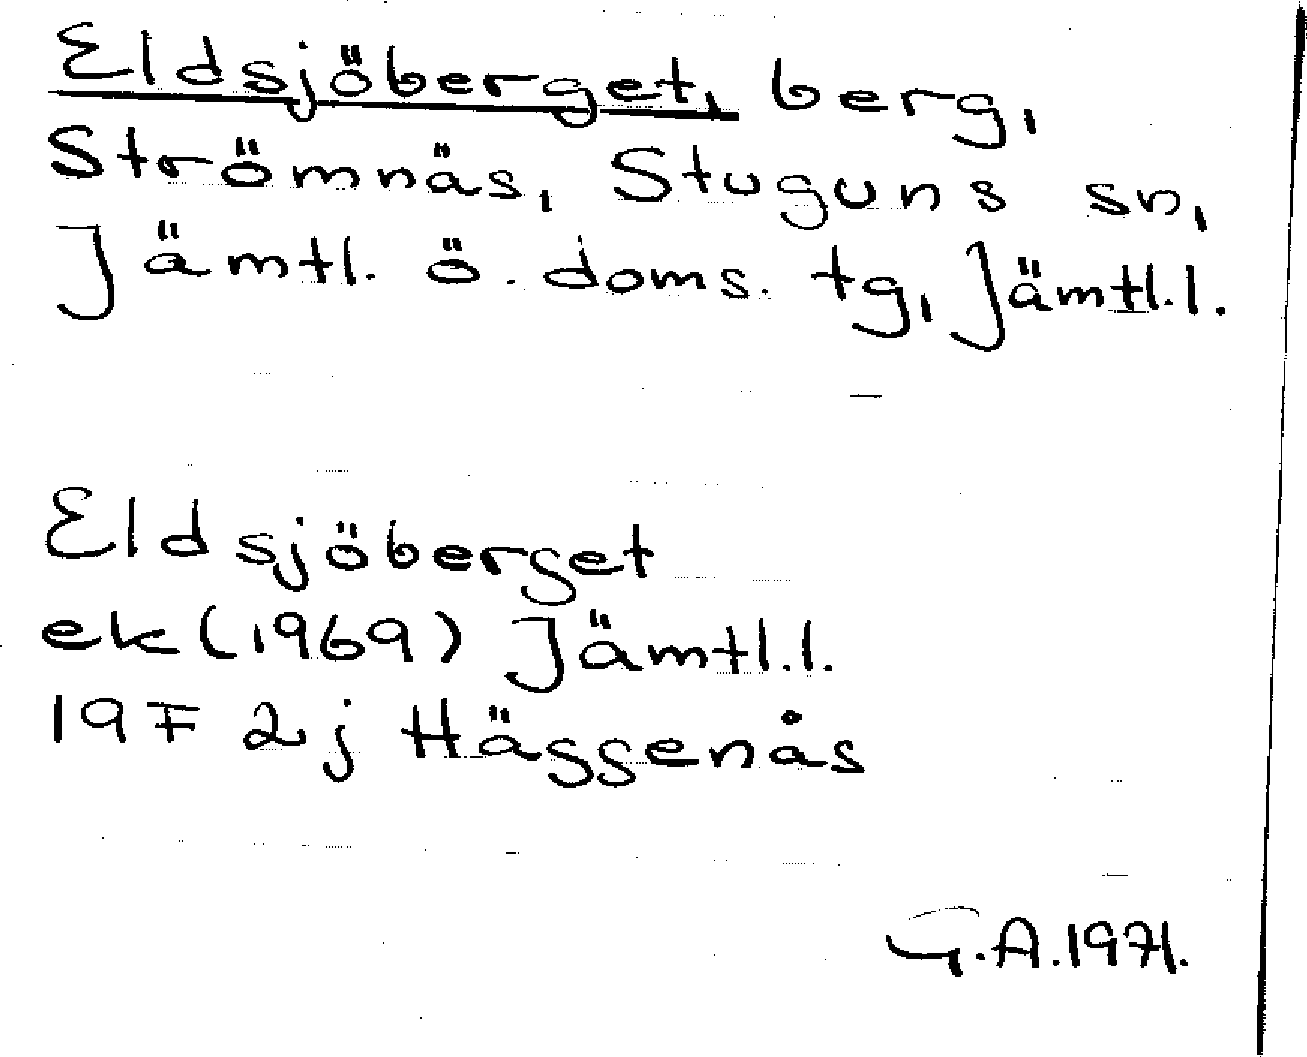 Eldsjöberget, berg,
Strömnäs, Stuguns sn,
Jämtl. ö. doms. tg, Jämtl.l.
Eldsjöberget
ek (1969) Jämtl.l.
19F 2j Häggenås
G.A. 1971.